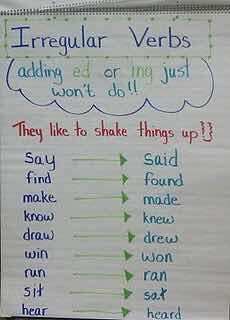 Irregular Verbs
adding ed or ing just
won't do!!
They like to shake things up!!
say said
find found
make made
know knew
draw drew
win won
run ran
sit sat
hear heard